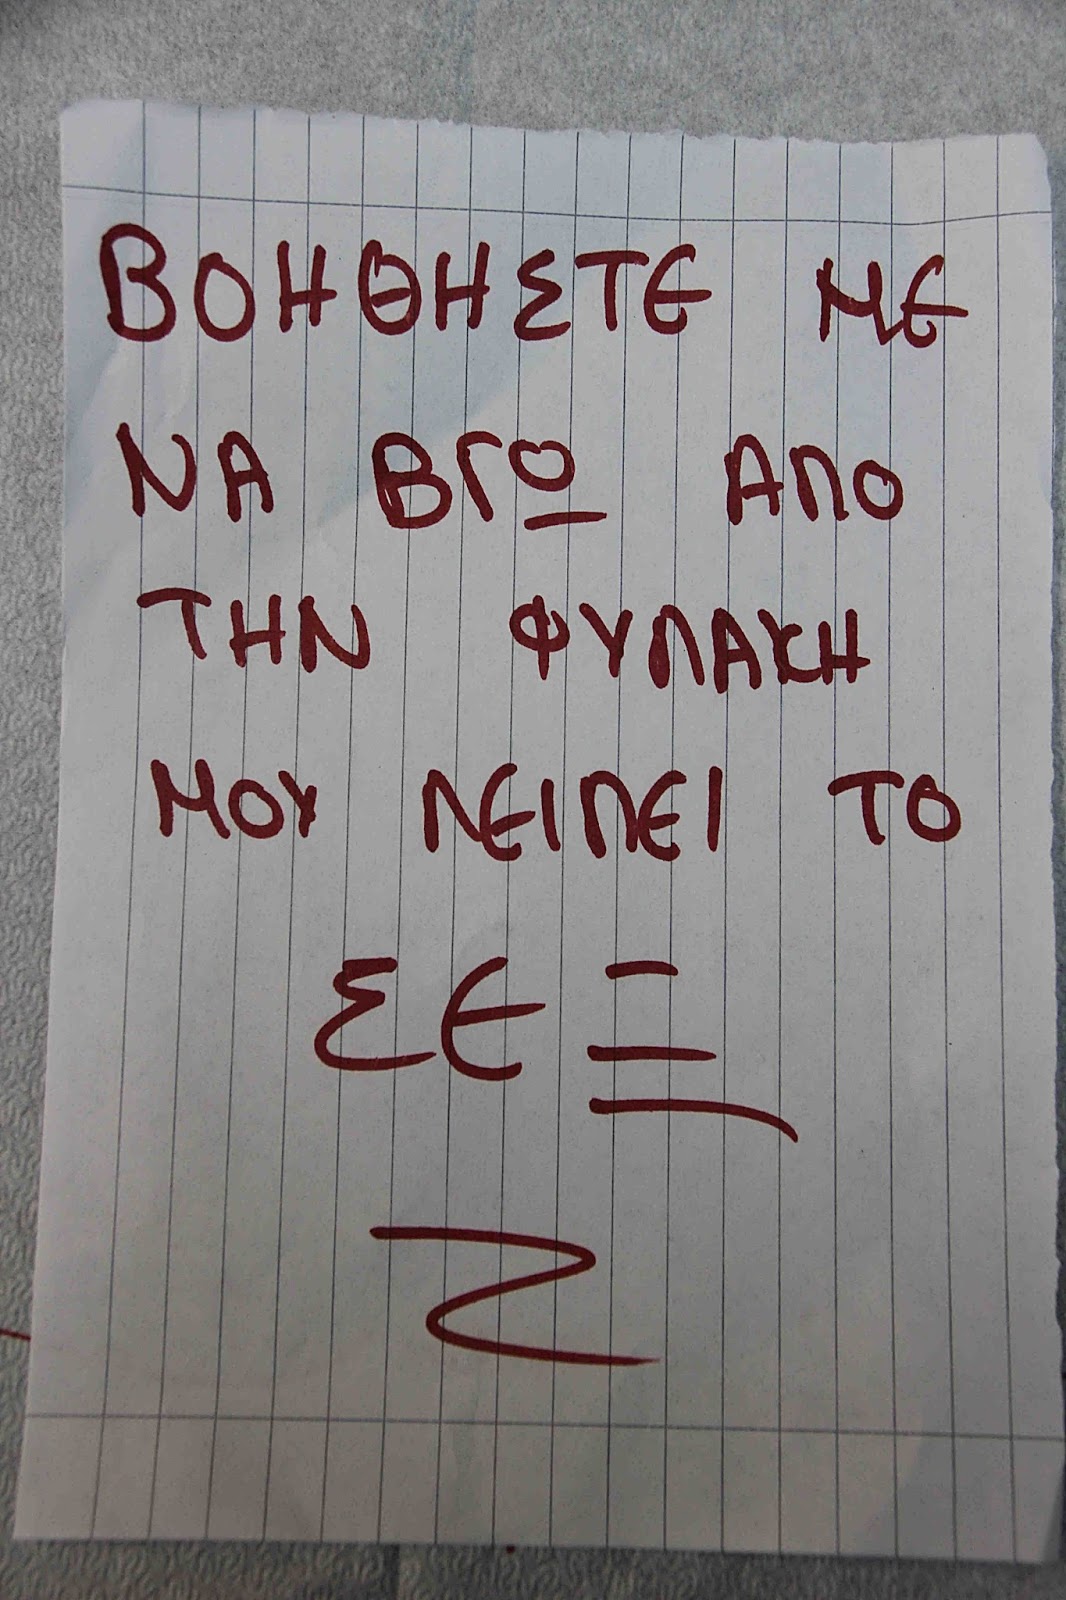 ΒΟΗΘΗΣΤΕ ΜΕ
ΝΑ ΒΓΩ ΑΠΟ
ΤΗΝ ΦΥΛΑΚΗ
ΜΟΥ ΛΕΙΠΕΙ ΤΟ
ΣΕΞ